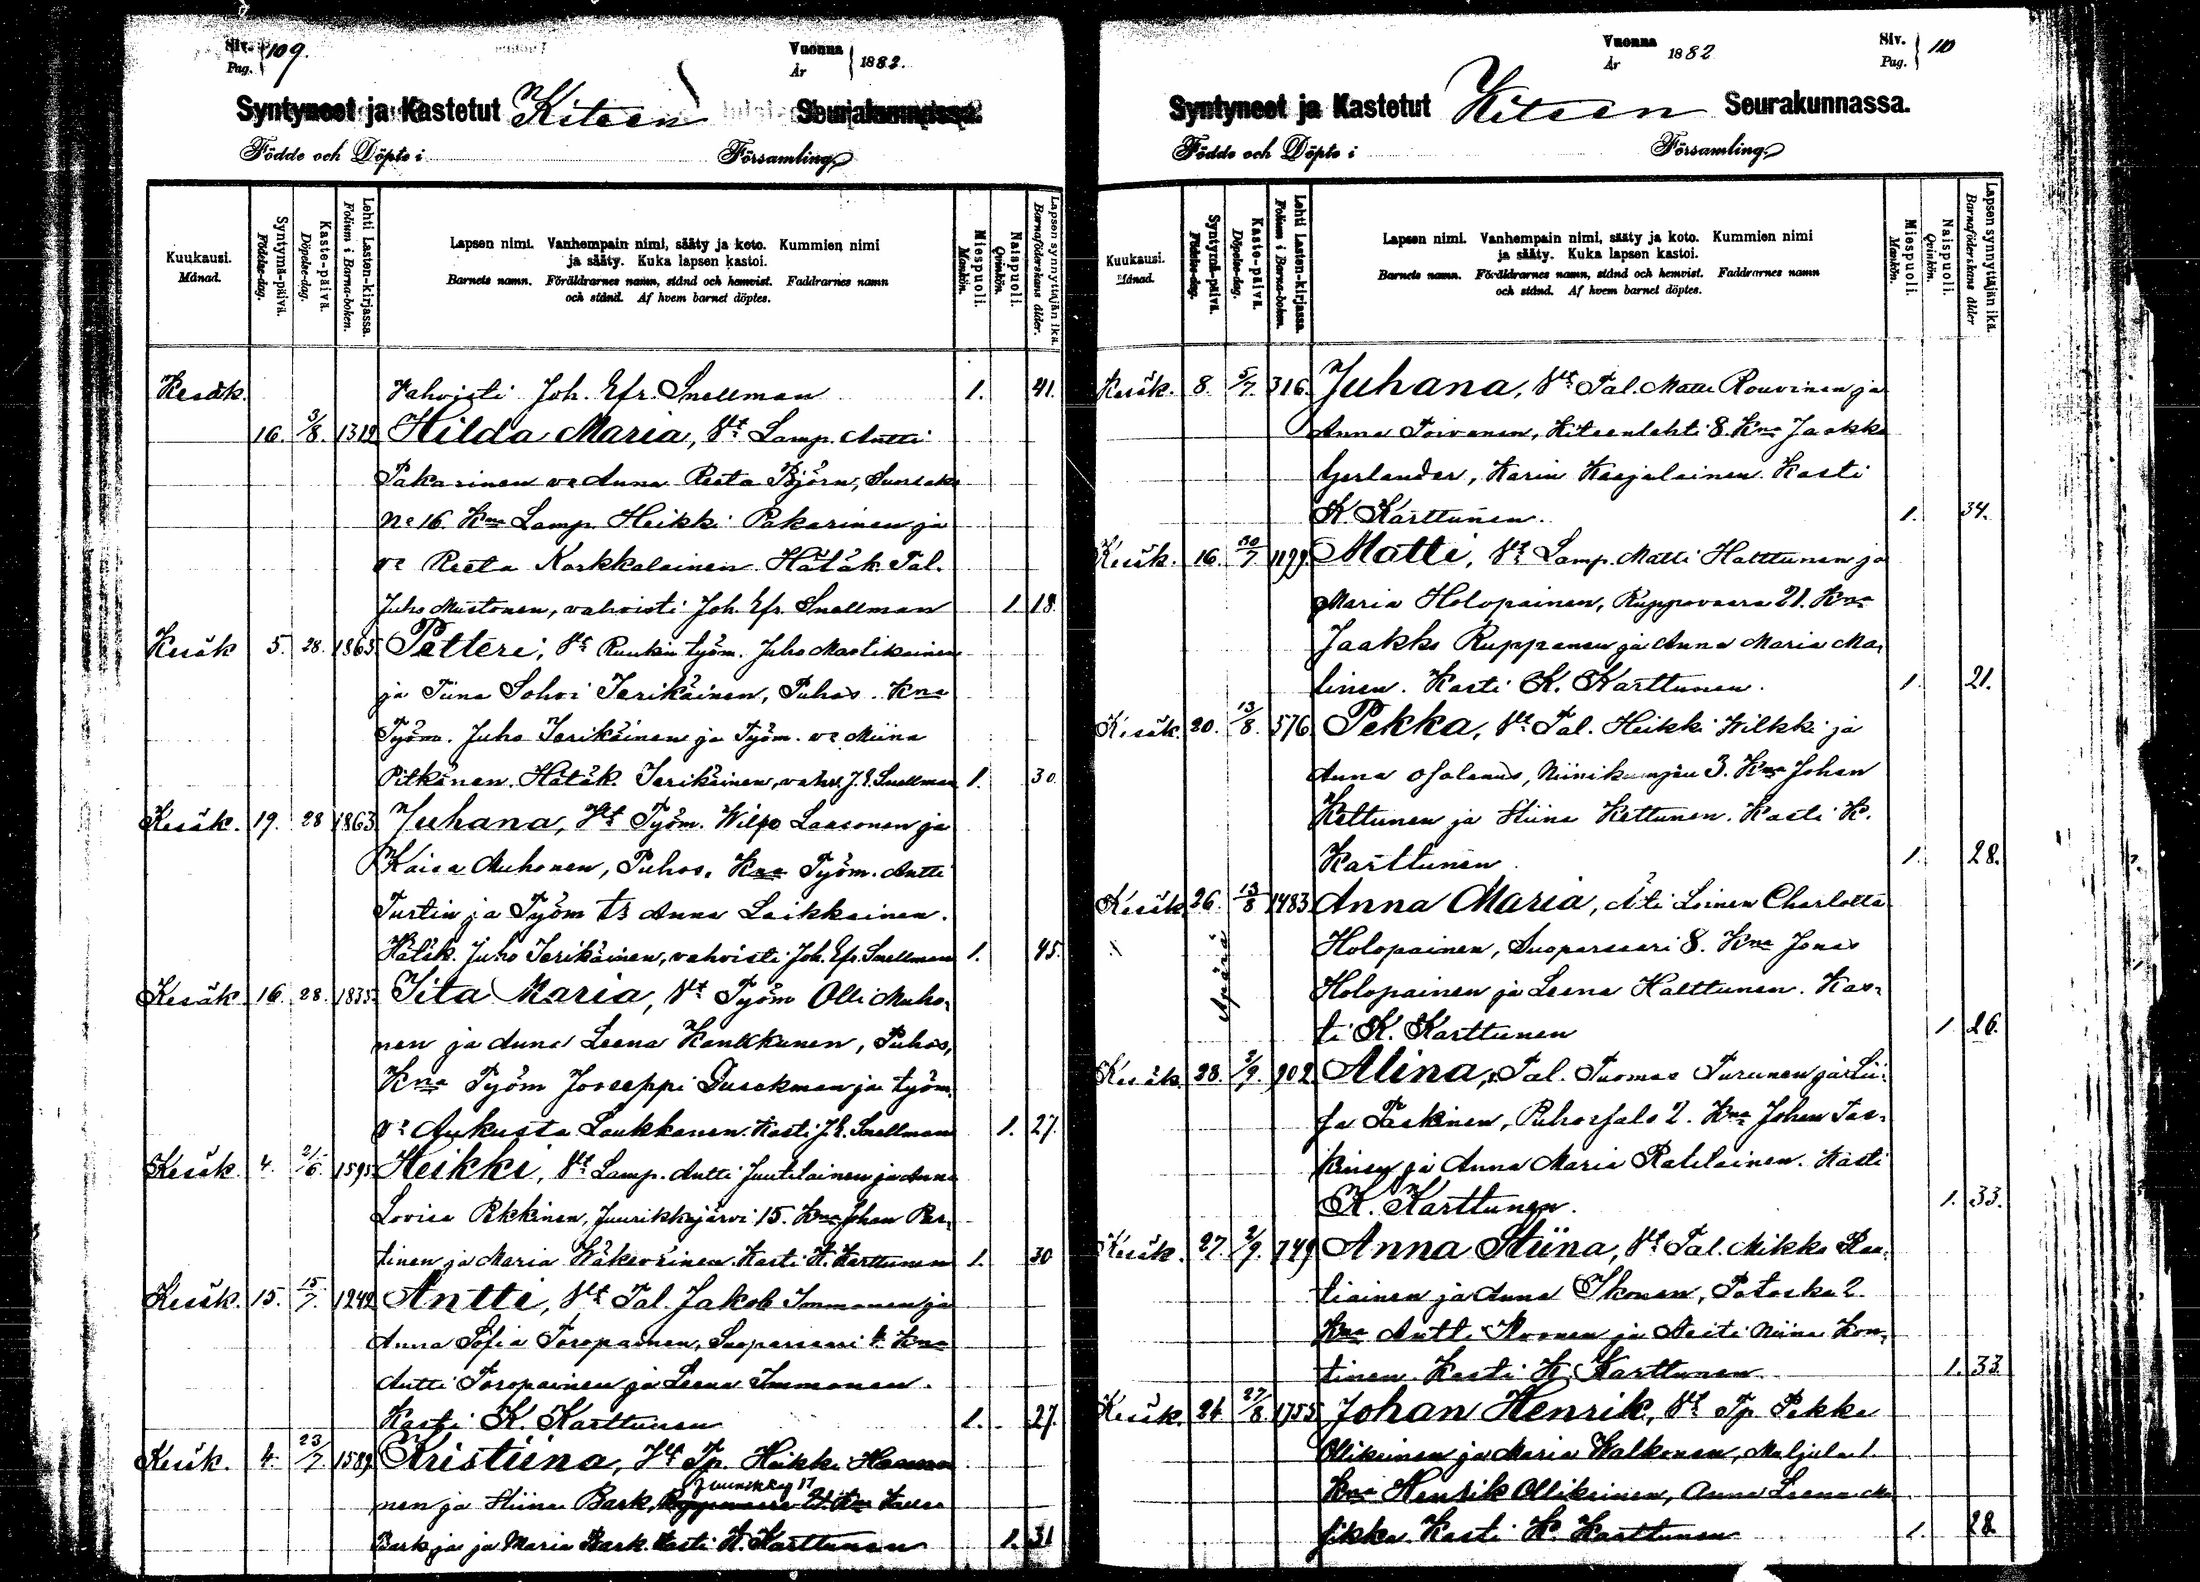 Siv. Pag. 109.
Vuonna År 1882.
Syntyneet ja Kastetut Kiteen Seurakunnassa.
Födde och Döpte i Församling.
Kuukausi. Månad.
Syntymä-päivä. Födelse-dag.
Kaste-päivä. Döpelse-dag.
Lehti Lasten-kirjassa. Folium i Barna-boken.
Lapsen nimi. Vanhempain nimi, sääty ja koto. Kummien nimi
ja sääty. Kuka lapsen kastoi.
Barnets namn. Föräldrarnes namn, stånd och hemvist. Faddrarnes namn
och stånd. Af hvem barnet döptes.
Miespuoli. Mankön.
Naispuoli. Qvinkön.
Lapsen synnyttäjän ikä. Barnaföderskans ålder.
Kesäk. Vahvisti Joh. Efr. Snellman 1. 41.
16. 3/8. 1312 Hilda Maria, Vt Lamp. Antti
Pakarinen va Anna Reeta Björn,
No 16. Kna Lamp. Heikki Pakarinen ja
va Reeta Karkkalainen Hätäk. Tal.
Juho Mustonen, vahvisti Joh. Efr. Snellman 1. 18.
Kesäk 5. 28. 1865 Petteri, Vt Ruukin työm. Juho Mastikainen
ja Tiina Sohvi Terikäinen, Puhos. Kna
Työm. Juho Terikäinen ja Työm. va Miina
Pitkänen. Hätäk. Terikäinen, vahv. J. E. Snellman 1. 30.
Kesäk. 19. 28 1863 Juhana, Vt Työm. Wilpo Laasonen ja
Kaisa Muhonen, Puhos. Kna Työm. Antti
Turtin ja Työm. ts Anna Laikkainen.
Hätäk. Juho Terikäinen, vahvisti Joh. Efr. Snellman 1. 45.
Kesäk 16. 28. 1835 Iita Maria, Vt Työm Olli Muho-
nen ja Anna Leena Kankkunen, Puhos,
Kna Työm Jooseppi Dusckman ja työm.
va Aukusta Laukkanen. Kasti J. E. Snellman 1. 27.
Kesäk. 4. 21/6. 1595 Heikki, Vt Lamp. Antti Juutilainen ja Anna
Lovisa Pekkinen, Juurikkajärvi 15. Kna Johan
tinen ja Maria Wäkeväinen. Kasti K. Karttunen 1. 30
Kesäk. 15. 15/7. 1242 Antti, Vt Tal. Jakob Immonen ja
Anna Sofia Toropainen, Suoparsaari 4. Kna
Antti Toropainen ja Leena Immonen.
Kasti K. Karttunen 1. 27.
Kesäk. 4. 23/7. 1589 Kristiina, Vt Tp. Heikki
nen ja Stiina Bark,
Bark ja Maria Bark. Kasti K. Karttunen 1. 31
Vuonna År 1882
Siv. Pag. 110
Syntyneet ja Kastetut Kiteen Seurakunnassa.
Födde och Döpte i Församling.
Kuukausi. Månad.
Syntymä-päivä. Födelse-dag.
Kaste-päivä. Döpelse-dag.
Lehti Lasten-kirjassa. Folium i Barna-boken.
Lapsen nimi. Vanhempain nimi, sääty ja koto. Kummien nimi
ja sääty. Kuka lapsen kastoi.
Barnets namn. Föräldrarnes namn, stånd och hemvist. Faddrarnes namn
och stånd. Af hvem barnet döptes.
Miespuoli. Mankön.
Naispuoli. Qvinkön.
Lapsen synnyttäjän ikä. Barnaföderskans ålder
Kesäk. 8. 5/7. 316. Juhana, Vt Tal. Matti Rouvinen ja
Anna Toivanen, Kiteenlahti 8. Kna Jaakko
Gerlander, Karin Karjalainen. Kasti
K. Karttunen. 1. 34.
Kesäk. 16. 30/7 1199. Matti, Vt Lamp. Matti Halttunen ja
Maria Holopainen, Ruppovaara 21. Kna
Jaakko Ruppanen ja Anna Maria Ma-
linen. Kasti K. Karttunen. 1. 21.
Kesäk. 20. 13/8. 576. Pekka, Vt Tal. Heikki Wilkki ja
Anna Niinikumpu 3. Kna Johan
Kettunen ja Stiina Kettunen. Kasti K.
Karttunen 1. 28.
Kesäk. 26. 13/8 1483 Anna Maria, Äiti Loinen Charlotta
Äpärä Holopainen, Suoparsaari 8. Kna Jonas
Holopainen ja Leena Halttunen. Kas-
ti K. Karttunen 1 26.
Kesäk. 28. 3/9. 902 Alina, Tal. Tuomas Turunen ja Lii-
sa Paskinen, Puhossalo 2. Kna Johan Pas-
kinen ja Anna Maria Ratilainen. Kasti
K. Karttunen. 1. 33.
Kesäk. 27. 3/9. 749 Anna Stiina, Vt Tal. Mikko Raa-
tiainen ja Anna Ikonen, Potoska 2.
Kna Antti ja Neiti Miina Kon-
tinen Kasti K. Karttunen 1. 33.
Kesäk. 24 27/8 1755 Johan Henrik, Vt Tp. Pekka
Ollikainen ja Maria Walkonen, Maljula 1.
Kna Henrik Ollikainen, Anna Leena
Kasti K. Karttunen 1. 28